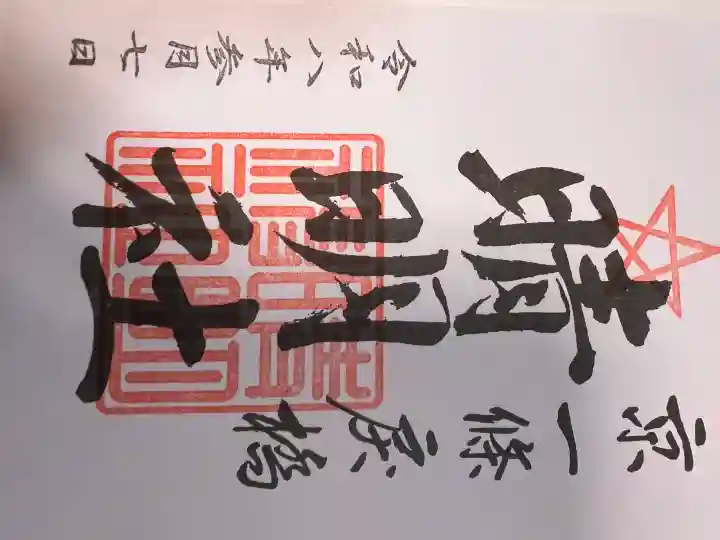 京一條戻橋
晴明社
令和八年叁月七日